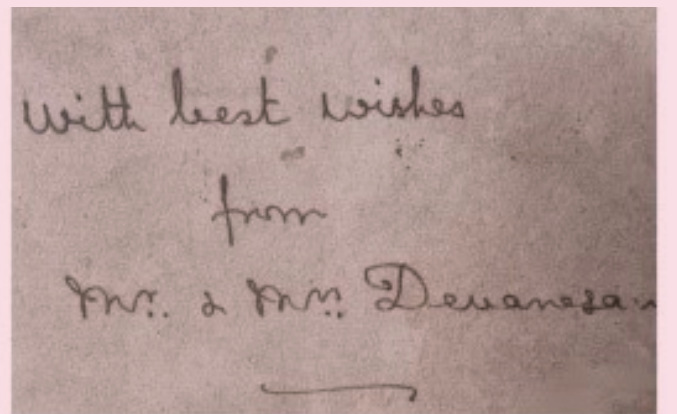 With best wishes
from
Mr. & Mrs. Devanesan